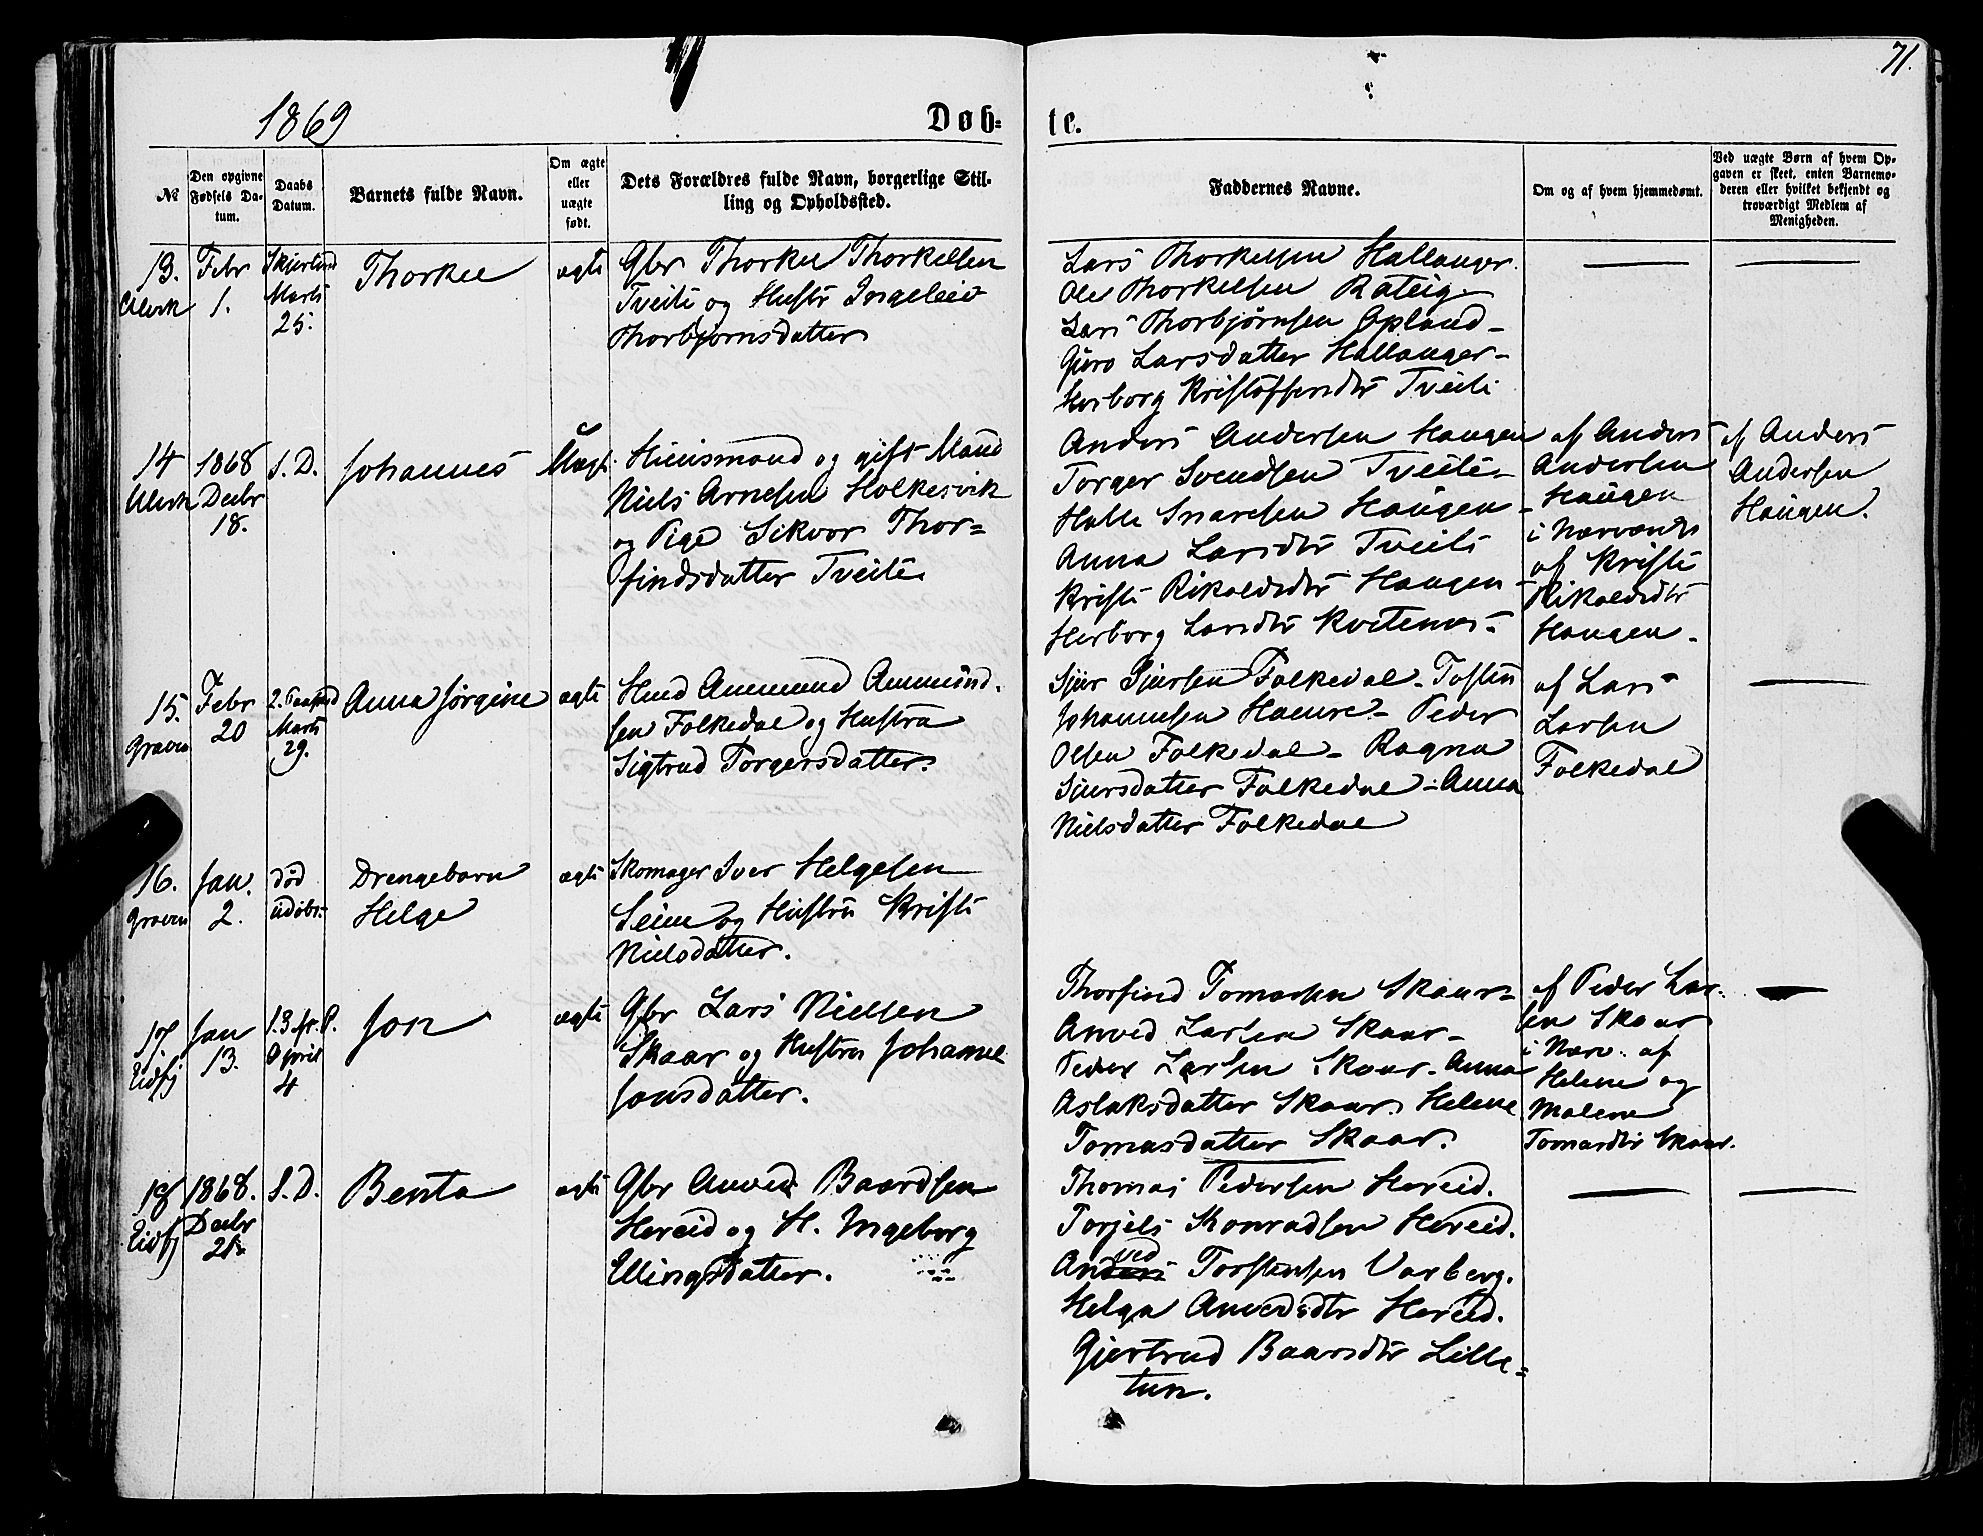 71.
1869
Døb-
te.
№
Den opgivne Fødsels Datum.
Daabs Datum.
Barnets fulde Navn.
Om ægte eller uægte født.
Dets Forældres fulde Navn, borgerlige Stilling og Opholdssted.
Faddernes Navne.
Om og af hvem hjemmedøbt.
Ved uægte Børn af hvem Opgaven er skeet, enten Barnemoderen eller hvilket bekjendt og troværdigt Medlem af Menigheden.
13.
Ulvik
Febr
1.
Marts
25.
Thorkel
ægte
Gbr Thorkel Thorkelsen
Tveite og Hustr Ingeleiv
Thorbjørnsdatter
Lars Thorkelsen Hallanger.
Ole Thorkelsen Rateig.
Lars Thorbjørnsen Opland-
Guro Larsdatter Hallanger-
Herborg Kristoffersdtr Tveite
14
Ulvik
1868
Decbr
18.
S.D.
Johannes
Uægt.
og gift Mand
Niels Arnesen Holkesvik
og Pige Sikvor Thor-
findsdatter Tveite.
Anders Andersen Haugen
Torger Svendsen Tveite-
Halle Snaresen Haugen-
Anna Larsdtr Tveite
Kristi Rikoldsdtr Haugen-
Herborg Larsdtr Kvitenes-
af Anders
Andersen
Haugen
i Nærværelse
af Kristi
Rikoldsdtr
Haugen.
af Anders
Andersen
Haugen.
15.
Graven
Febr
20
2. Paaskd
Marts
29.
Anna Jørgine
ægte
Hmd Aummund Aummund-
sen Folkedal og Hustru
Sigtrud Torgersdatter.
Sjur Sjursen Folkedal- Tosten
Johannesen Haeure- Peder
Olsen Folkedal- Ragna
Sjursdatter Folkedal- Anna
Nielsdatter Folkedal
af Lars
Larsen
Folkedal
16.
Graven
Jan.
2.
død
udøbt
Drengebarn
Helge
ægte
Skomager Iver Helgesen
Seim og Hustru Kristi
Nielsdatter.
17.
Eidfj
Jan
13.
April
4
Jon
ægte
Gbr Lars Nielsen
Skaar og Hustru Johanne
Jonsdatter.
Thorfind Tomassen Skaar-
Anved Larsen Skaar-
Peder Larsen Skaar- Anna
Aslaksdatter Skaar. Helene
Tomasdatter Skaar.
af Peder Lar-
sen Skaar
i Nærv. af
Helene og
Malene
Tomasdtr Skaar.
18
Eidfj
1868.
Decbr
21.
S.D.
Benta
ægte
Gbr Anved Baardsen
Hereid og H. Ingeborg
Ellingsdatter.
Thomas Pedersen Hereid.
Torjels Konradsen Hereid.
ved
Anders Torstensen Varberg.
Helga Anvedsdtr Hereid.
Gjertrud Baarsdtr Lille-
tun.